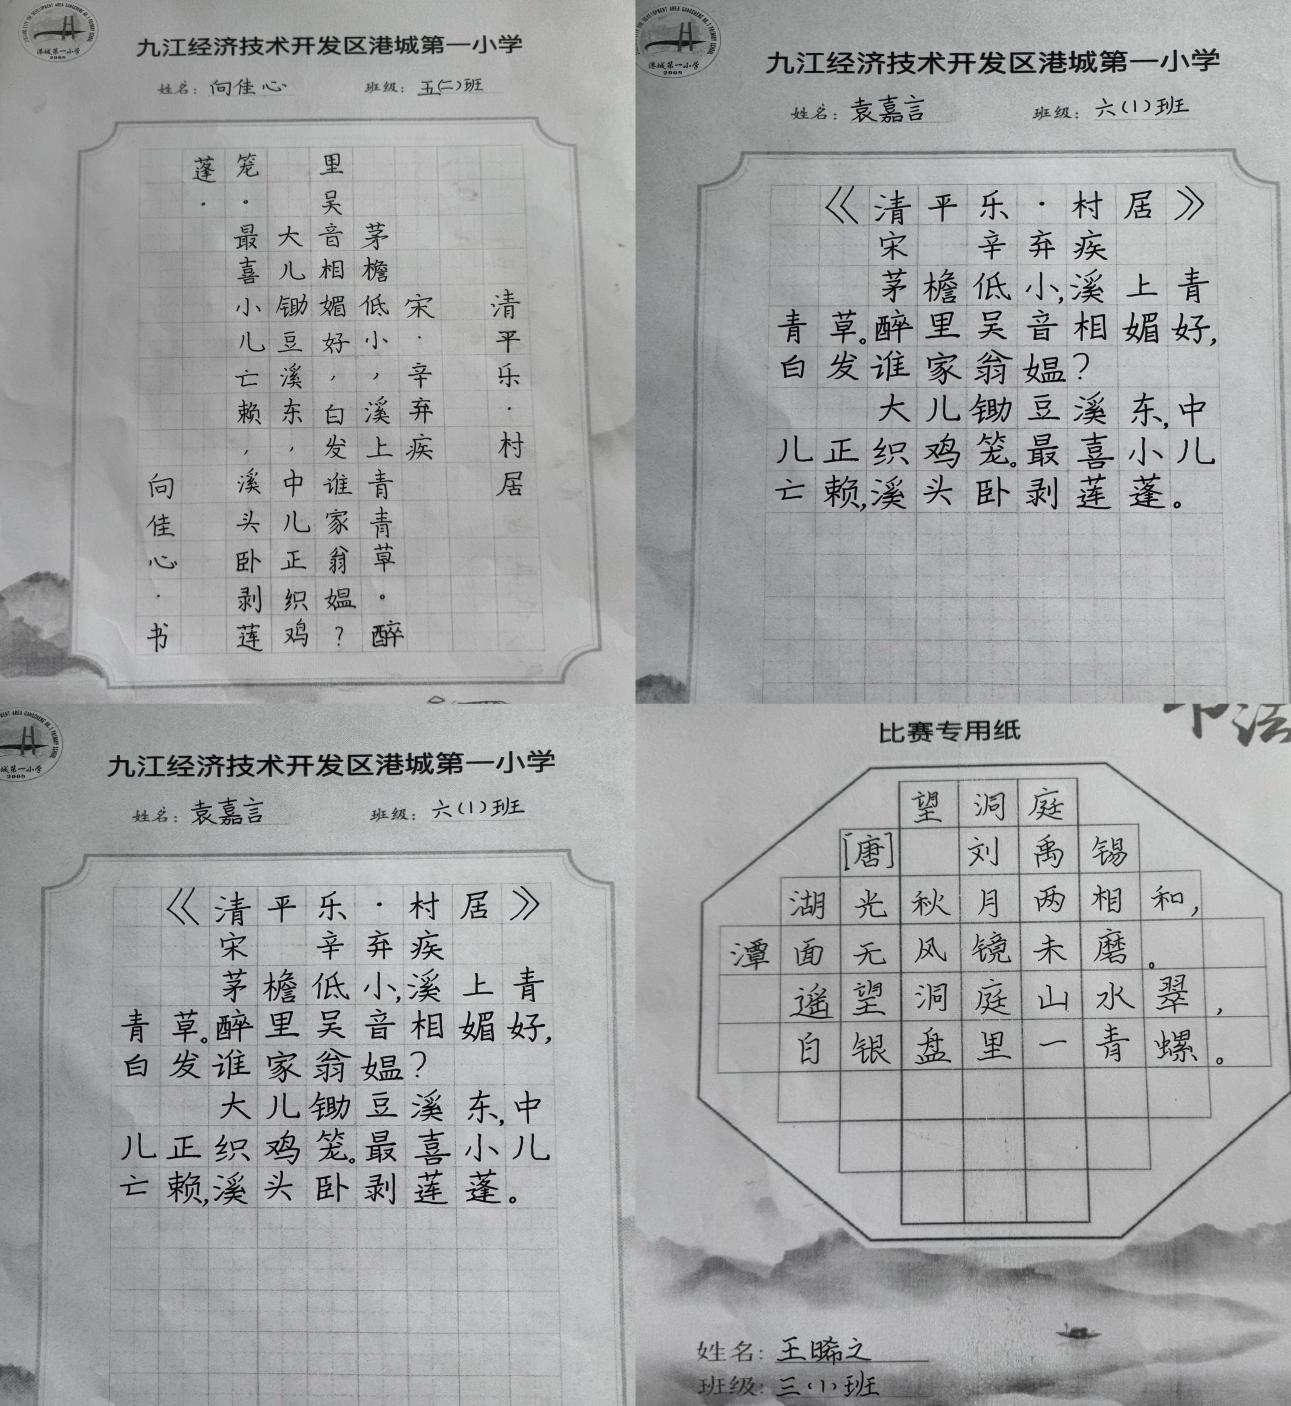 港城第一小学
2008
九江经济技术开发区港城第一小学
姓名：向佳心 班级：五(二)班
清平乐·村居
宋·辛弃疾
茅檐低小，溪上青青草。醉
里吴音相媚好，白发谁家翁媪？
大儿锄豆溪东，中儿正织鸡
笼·最喜小儿亡赖，溪头卧剥莲
蓬·
向佳心·书
港城第一小学
2008
九江经济技术开发区港城第一小学
姓名：袁嘉言 班级：六(1)班
《清平乐·村居》
宋 辛弃疾
茅檐低小,溪上青
青草。醉里吴音相媚好,
白发谁家翁媪?
大儿锄豆溪东,中
儿正织鸡笼。最喜小儿
亡赖,溪头卧剥莲蓬。
城第一小学
2008
九江经济技术开发区港城第一小学
姓名：袁嘉言 班级：六(1)班
《清平乐·村居》
宋 辛弃疾
茅檐低小,溪上青
青草。醉里吴音相媚好,
白发谁家翁媪?
大儿锄豆溪东,中
儿正织鸡笼。最喜小儿
亡赖,溪头卧剥莲蓬。
比赛专用纸
望洞庭
[唐] 刘禹锡
湖光秋月两相和,
潭面无风镜未磨。
遥望洞庭山水翠,
白银盘里一青螺。
姓名：王晞之
班级：三(1)班